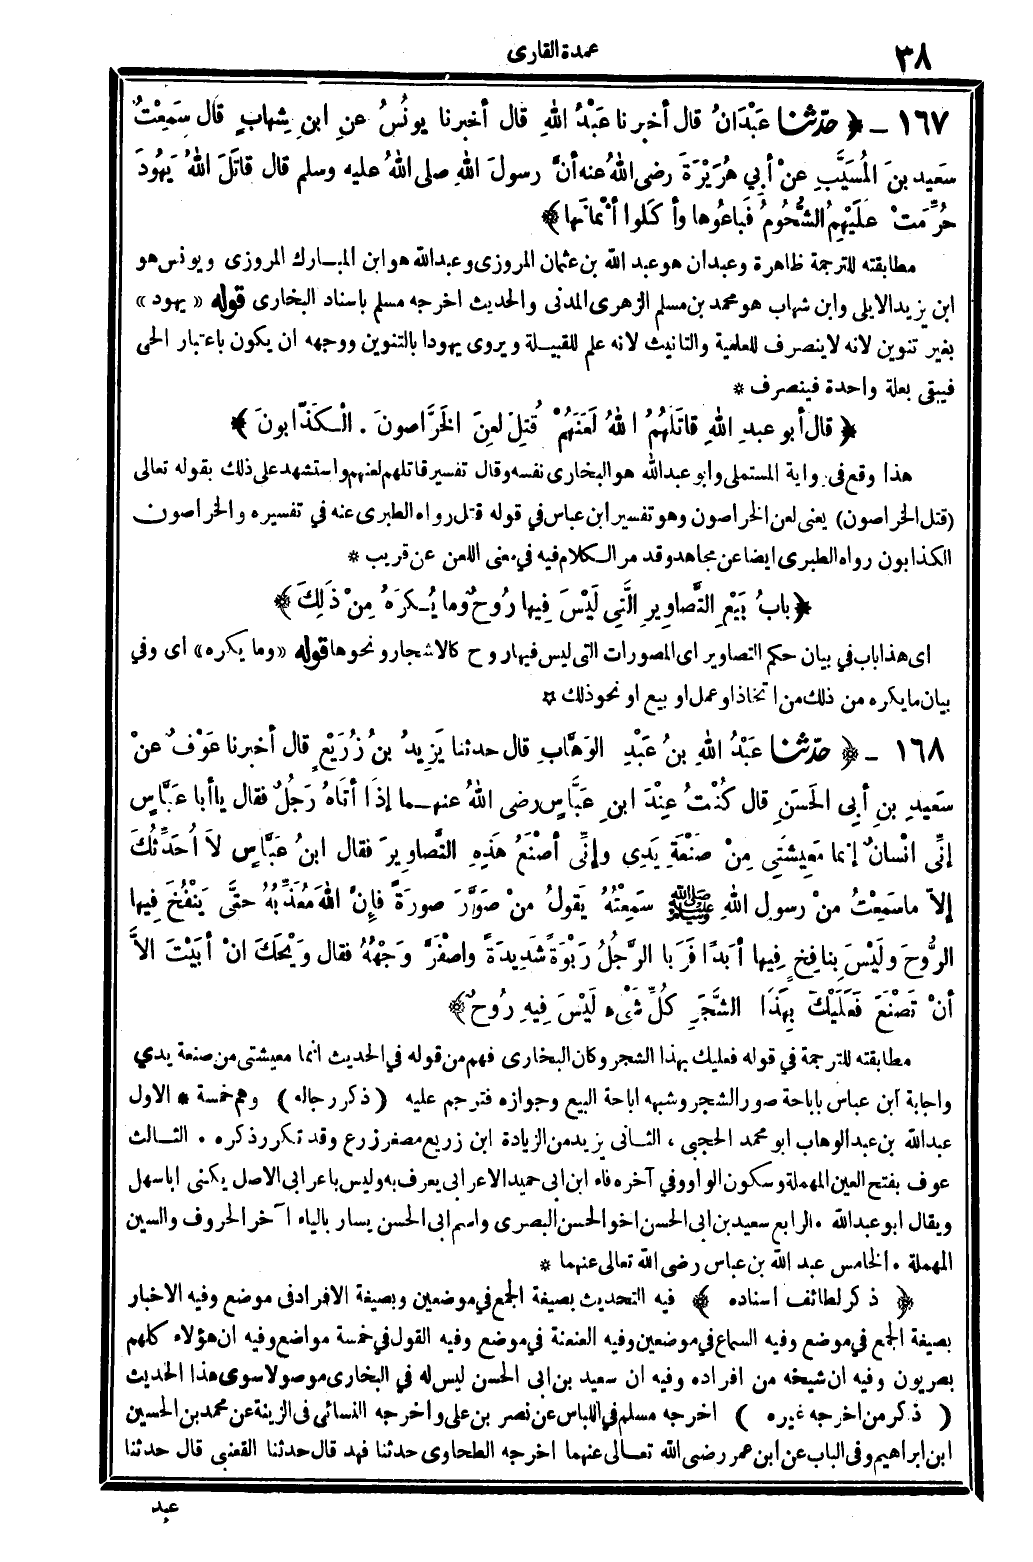 ٣٨
عمدة القارى
١٦٧ ـ ﴿ حدّثنا عَبْدَانُ قال أخبرنا عَبْدُ اللهِ قال أخبرنا يونُسُ عنِ ابنِ شِهابٍ قال سَمِعْتُ
سَعيد بنَ المُسَيَّبِ عنْ أبي هُرَيْرَةَ رضى اللهُ عنه أنَّ رسولَ اللهِ صلى اللهُ عليه وسلم قال قاتَلَ اللهُ يَهُودَ
حُرِّمَتْ عَلَيْهِمُ الشُّحُومُ فَباعُوها وأكَلوا أثْمانَها ﴾
مطابقته للترجمة ظاهرة وعبدان هو عبد الله بن عثمان المروزى وعبدالله هو ابن المبـارك المروزى ويونس هو
ابن يزيد الايلى وابن شهاب هو محمد بن مسلم الزهرى المدنى والحديث اخرجه مسلم باسناد البخارى قوله «يهود»
بغير تنوين لانه لاينصرف للعلمية والتانيث لانه علم للقبيـلة ويروى يهودا بالتنوين ووجهه ان يكون باعتبار الحى
فيبقى بعلة واحدة فينصرف *
﴿ قال أبو عبدِ اللهِ قاتَلَهُمُ اللهُ لَعَنَهُمْ قُتِلَ لعِنَ الخَرَّاصونَ . الْـكَذَّابونَ ﴾
هذا وقع فى رواية المستملى وأبو عبدالله هو البخارى نفسه وقال تفسير قاتلهم لعنهم واستشهد على ذلك بقوله تعالى
(قتل الخراصون) يعنى لعن الخراصون وهو تفسير ابن عباس في قوله قتل رواه الطبرى عنه في تفسيره والخراصون
الكذابون رواه الطبرى ايضا عن مجاهد وقد مر الـكلام فيه في معنى اللعن عن قريب *
﴿ بابُ بَيْعِ التَّصاوِيرِ الَّتِي لَيْسَ فِيها رُوحٌ وما يُـكرَهُ مِنْ ذَلِكَ ﴾
اى هذا باب في بيان حكم التصاوير اى المصورات التى ليس فيها روح كالاشجار ونحوها قوله «وما يكره» اى وفي
بيان ما يكره من ذلك من اتخاذ او عمل او بيع او نحو ذلك ٭
١٦٨ ـ ﴿ حدّثنا عَبْدُ اللهِ بنُ عَبْدِ الوَهَّابِ قال حدثنا يَزِيدُ بنُ زُرَيْعٍ قال أخبرنا عَوْفٌ عنْ
سَعِيدِ بنِ أبِي الحَسَنِ قال كُنْتُ عِنْدَ ابنِ عَبَّاسٍ رضى اللهُ عنهـما إذَا أتَاهُ رَجُلٌ فقال يا أبا عَبَّاسٍ
إنِّى انْسانٌ إنما مَعِيشَتِى مِنْ صَنْعَةِ يَدِى وإنِّى أصْنَعُ هَذِهِ التَّصاوِيرَ فقال ابنُ عَبَّاسٍ لاَ أُحَدِّثُكَ
إلاّ ما سَمِعْتُ منْ رسولِ اللهِ ﷺ سَمِعْتُهُ يَقولُ منْ صَوَّرَ صورَةً فإنَّ اللهَ مُعَذِّبُهُ حتَّى يَنْفُخَ فِيها
الرُّوحَ ولَيْسَ بِنافِخٍ فِيها أبَدًا فَرَبا الرَّجُلُ رَبْوَةً شَدِيدَةً واصْفَرَّ وَجْهُهُ فقال وَيْحَكَ انْ أبَيْتَ الاَّ
أنْ تَصْنَعَ فَعَلَيْكَ بِهَذَا الشَّجَرِ كُلِّ شَىْءٍ لَيْسَ فِيهِ رُوحٌ ﴾
مطابقته للترجمة في قوله فعليك بهذا الشجر وكان البخارى فهم من قوله في الحديث انما معيشتى من صنعة يدي
واجابة ابن عباس باباحة صور الشجر وشبهه اباحة البيع وجوازه فترجم عليه ( ذكر رجاله ) وهم خمسة * الاول
عبدالله بن عبدالوهاب ابو محمد الحجبى ، الثـانى يزيد من الزيادة ابن زريع مصغر زرع وقد تكرر ذكره . الثـالث
عوف بفتح العين المهملة وسكون الواو وفي آخره فاء ابن ابى حميد الاعرابى يعرف به وليس باعرابى الاصل يكنى اباسهل
ويقال ابوعبدالله . الرابع سعيد بن ابى الحسن اخو الحسن البصرى واسم ابى الحسن يسار بالياء آخر الحروف والسين
المهملة . الخامس عبد الله بن عباس رضى الله تعالى عنهما *
﴿ ذكر لطائف اسناده ﴾ فيه التحديث بصيغة الجمع في موضعين وبصيغة الافراد فى موضع وفيه الاخبار
بصيغة الجمع في موضع وفيه السماع في موضعين وفيه العنعنة في موضع وفيه القول في خمسة مواضع وفيه ان هؤلاء كلهم
بصريون وفيه ان شيخه من افراده وفيه ان سعيد بن ابى الحسن ليس له في البخارى موصولا سوى هذا الحديث
( ذكر من اخرجه غيره ) اخرجه مسلم في اللباس عن نصر بن على واخرجه النسائى فى الزينة عن محمد بن الحسين
ابن ابراهيم وفى الباب عن ابن عمر رضى الله تعـالى عنهما اخرجه الطحاوى حدثنا فهد قال حدثنا القعنبى قال حدثنا
عبد